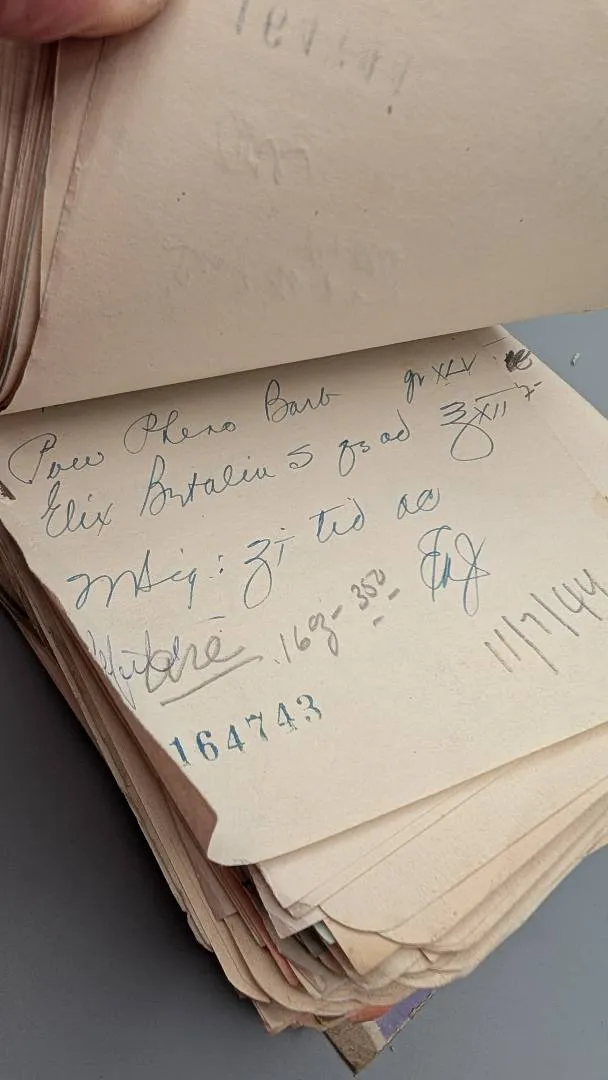 Pow Pheno Barb gr XLV
Elix Butalin S qs ad ℥ XII
M Sig: ʒ i tid ac
16℥ - 350
11/7/44
164743